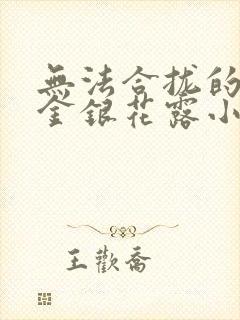 無法合拢的
金銀花露小
王歡喬